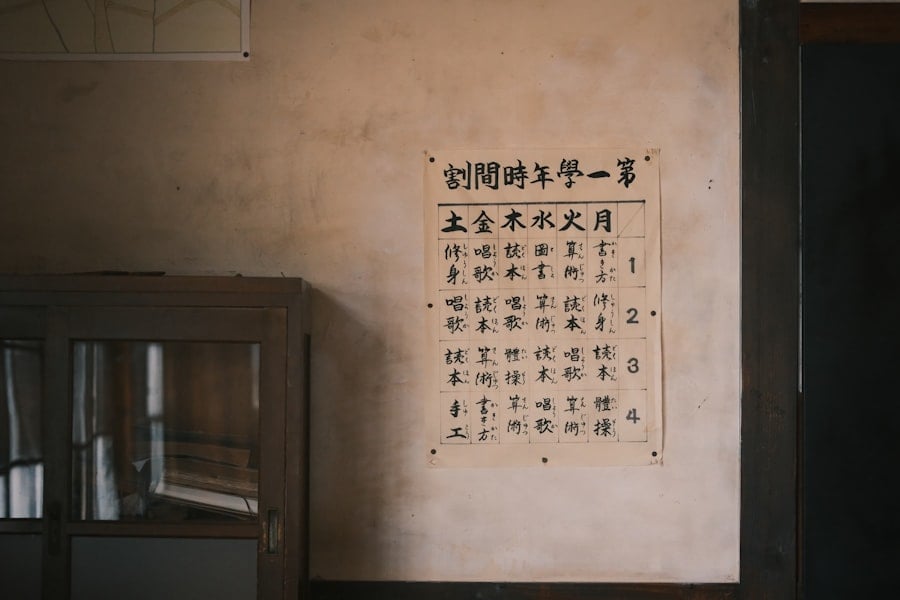 第一學年時間割
月 火 水 木 金 土
1 書き方 算術 圖書 読本 唱歌 修身
2 修身 読本 算術 唱歌 読本 唱歌
3 読本 唱歌 読本 體操 算術 読本
4 體操 算術 唱歌 算術 書き方 手工